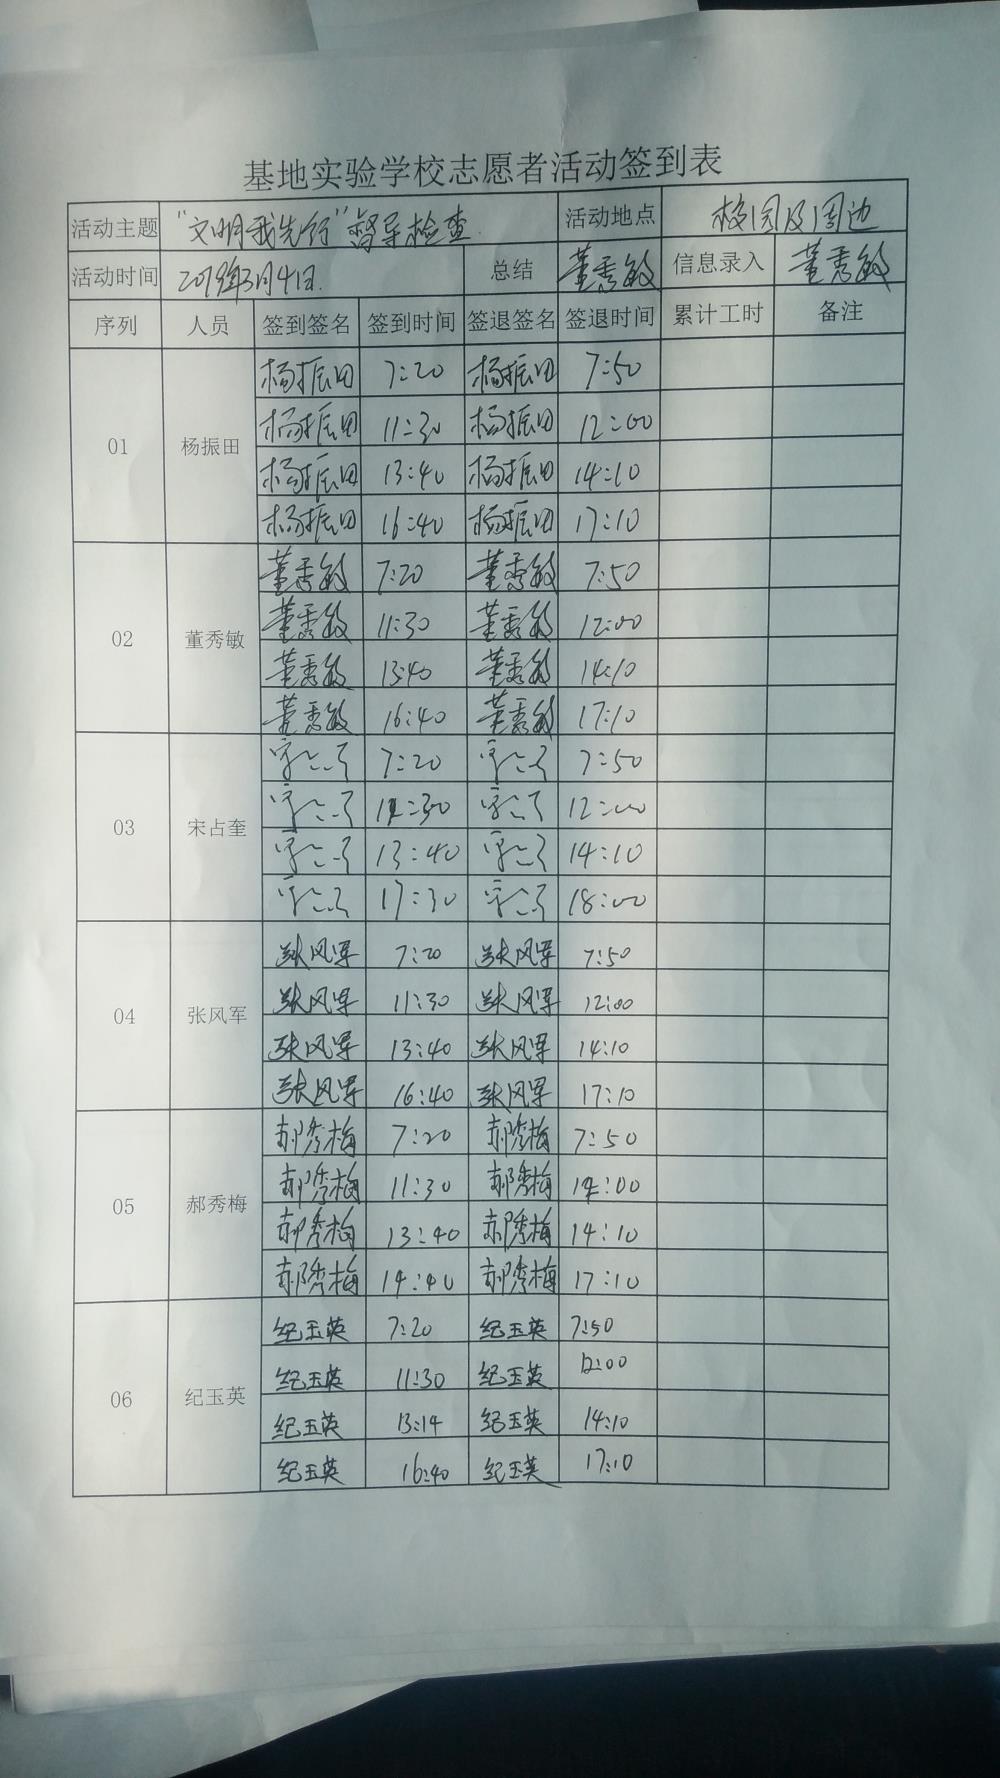 基地实验学校志愿者活动签到表
活动主题 "文明我先行"督导检查 活动地点 校园及周边
活动时间 2019年3月4日 总结 董秀敏 信息录入 董秀敏
序列 人员 签到签名 签到时间 签退签名 签退时间 累计工时 备注
杨振田 7:20 杨振田 7:50
杨振田 11:30 杨振田 12:00
01 杨振田
杨振田 13:40 杨振田 14:10
杨振田 16:40 杨振田 17:10
董秀敏 7:20 董秀敏 7:50
董秀敏 11:30 董秀敏 12:00
02 董秀敏
董秀敏 13:40 董秀敏 14:10
董秀敏 16:40 董秀敏 17:10
7:20 7:50
11:30 12:00
03 宋占奎
13:40 14:10
17:30 18:00
张风军 7:20 张风军 7:50
张风军 11:30 张风军 12:00
04 张风军
张风军 13:40 张风军 14:10
张风军 16:40 张风军 17:10
郝秀梅 7:20 郝秀梅 7:50
郝秀梅 11:30 郝秀梅 12:00
05 郝秀梅
郝秀梅 13:40 郝秀梅 14:10
郝秀梅 14:40 郝秀梅 17:10
纪玉英 7:20 纪玉英 7:50
纪玉英 11:30 纪玉英 12:00
06 纪玉英
纪玉英 13:14 纪玉英 14:10
纪玉英 16:40 纪玉英 17:10